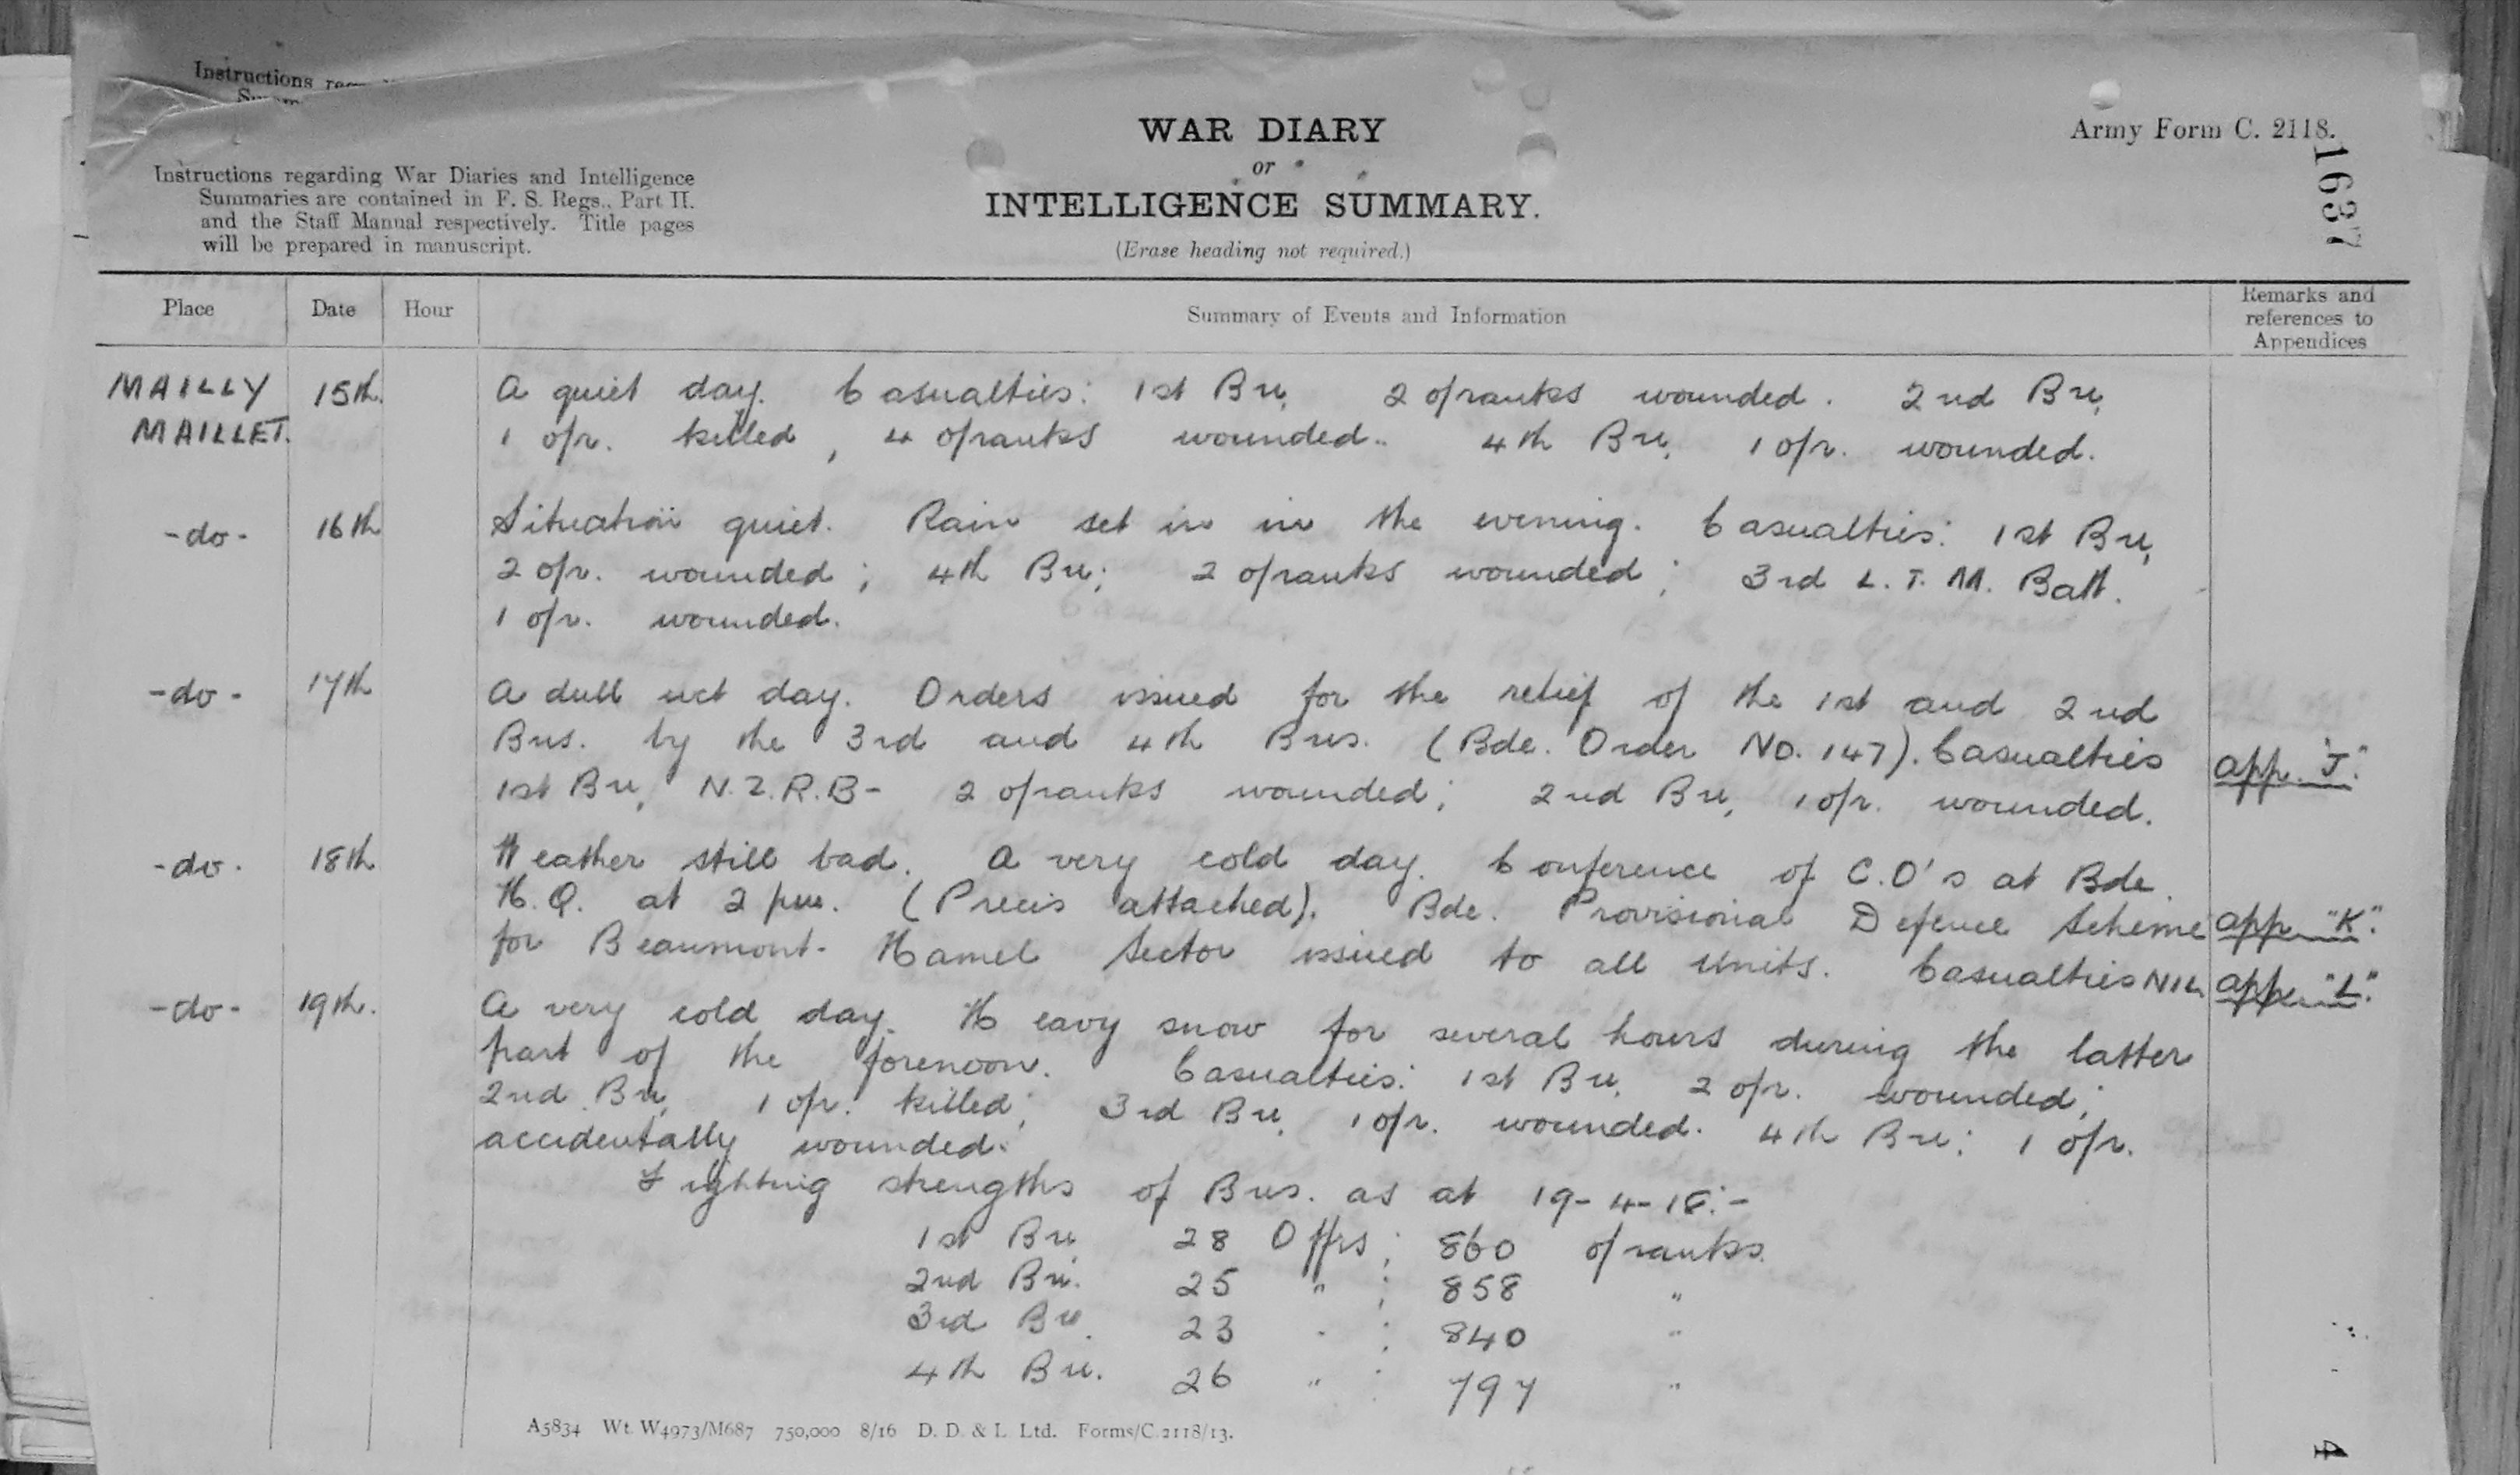 Instructions
WAR DIARY
or
INTELLIGENCE SUMMARY.
(Erase heading not required.)
Army Form C. 2118.
1637
Instructions regarding War Diaries and Intelligence
Summaries are contained in F. S. Regs., Part II.
and the Staff Manual respectively. Title pages
will be prepared in manuscript.
Place Date Hour Summary of Events and Information Remarks and references to Appendices
MAILLY 15th. A quiet day. Casualties: 1st Bn, 2 o/ranks wounded. 2nd Bn,
MAILLET. 1 o/r. killed, 4 o/ranks wounded.. 4th Bn, 1 o/r. wounded.
-do- 16th Situation quiet. Rain set in in the evening. Casualties: 1st Bn,
2 o/r. wounded; 4th Bn; 2 o/ranks wounded; 3rd L. T. M. Batt.
1 o/r. wounded.
-do- 17th A dull wet day. Orders issued for the relief of the 1st and 2nd
Bns. by the 3rd and 4th Bns. (Bde. Order No. 147). Casualties app. "J".
1st Bn, N.Z.R.B- 2 o/ranks wounded; 2nd Bn, 1 o/r. wounded.
-do- 18th Weather still bad. A very cold day. Conference of C.O's at Bde.
H.Q. at 2 pm. (Precis attached). Bde. Provisional Defence Scheme app. "K".
for Beaumont-Hamel Sector issued to all Units. Casualties NIL app. "L".
-do- 19th. A very cold day. Heavy snow for several hours during the latter
part of the forenoon. Casualties: 1st Bn, 2 o/r. wounded;
2nd Bn, 1 o/r. killed; 3rd Bn, 1 o/r. wounded. 4th Bn: 1 o/r.
accidentally wounded.
Fighting strengths of Bns. as at 19-4-18:-
1st Bn, 28 Offrs; 860 o/ranks.
2nd Bn. 25 " ; 858 "
3rd Bn. 23 " ; 840 "
4th Bn. 26 " : 797 "
A5834 Wt. W4973/M687 750,000 8/16 D. D. & L. Ltd. Forms/C.2118/13.
4